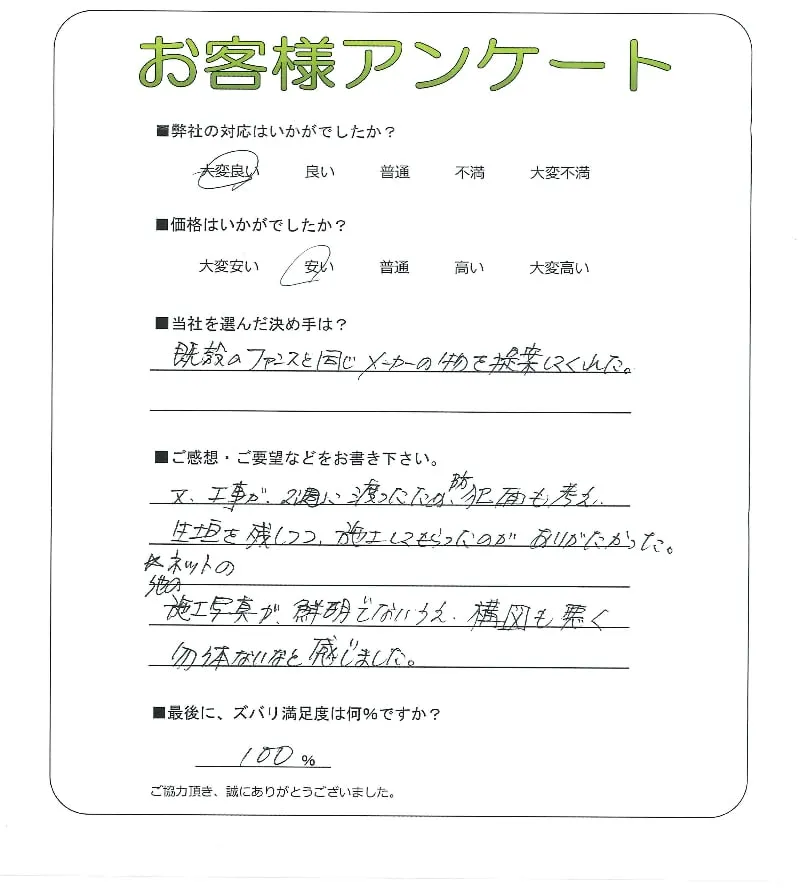 お客様アンケート
■弊社の対応はいかがでしたか？
大変良い 良い 普通 不満 大変不満
■価格はいかがでしたか？
大変安い 安い 普通 高い 大変高い
■当社を選んだ決め手は？
既設のフェンスと同じメーカーの物を提案してくれた。
■ご感想・ご要望などをお書き下さい。
又、工事が、2週に渡ったため、防犯面も考え、
生垣を残しつつ、施工してもらったのがありがたかった。
ネットの
他の
施工写真が、鮮明でないうえ、構図も悪く
勿体ないなと感じました。
■最後に、ズバリ満足度は何%ですか？
100 %
ご協力頂き、誠にありがとうございました。